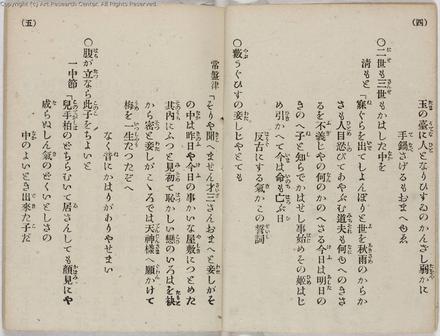 Copyright (c) Art Research Center. All Rights Reserved.
(四)
玉の臺に人となりひすゐのかんざし弱かに
手鍋さげるもおまへゆゑ
〇二世も三世もかはした中を
清もと「寐ぐらを出てしよんぼりと世を秋雨のからか
さも人目忍びてあやぶむ道夫も何ゆへのきさ
るを不義じやの何のかのへさる今日は明日の
きのへ子と知らでかはせし事始めその姫はじ
め引かへて今は命も亡ぶ日
反古にする氣かこの誓詞
〇藪うぐひすの妾しじやとても
(五)
常盤津
「そりや聞へません才三さんおまへと妾しがそ
の中は昨日や今日の事かいな屋敷につとめた
其内にふつと見初て恥かしい戀のいろはを袂
から密と妾しがこゝろでは天神樣へ願かけて
梅を一生だつたぞへ
なく音にかはりがありやせまい
〇腹が立なら此子をちよいと
一中節
「兒手柏のどちらむいて居さんしても顏見にや
成らぬしん氣のどくいとしさの
中のよいとき出來た子だ